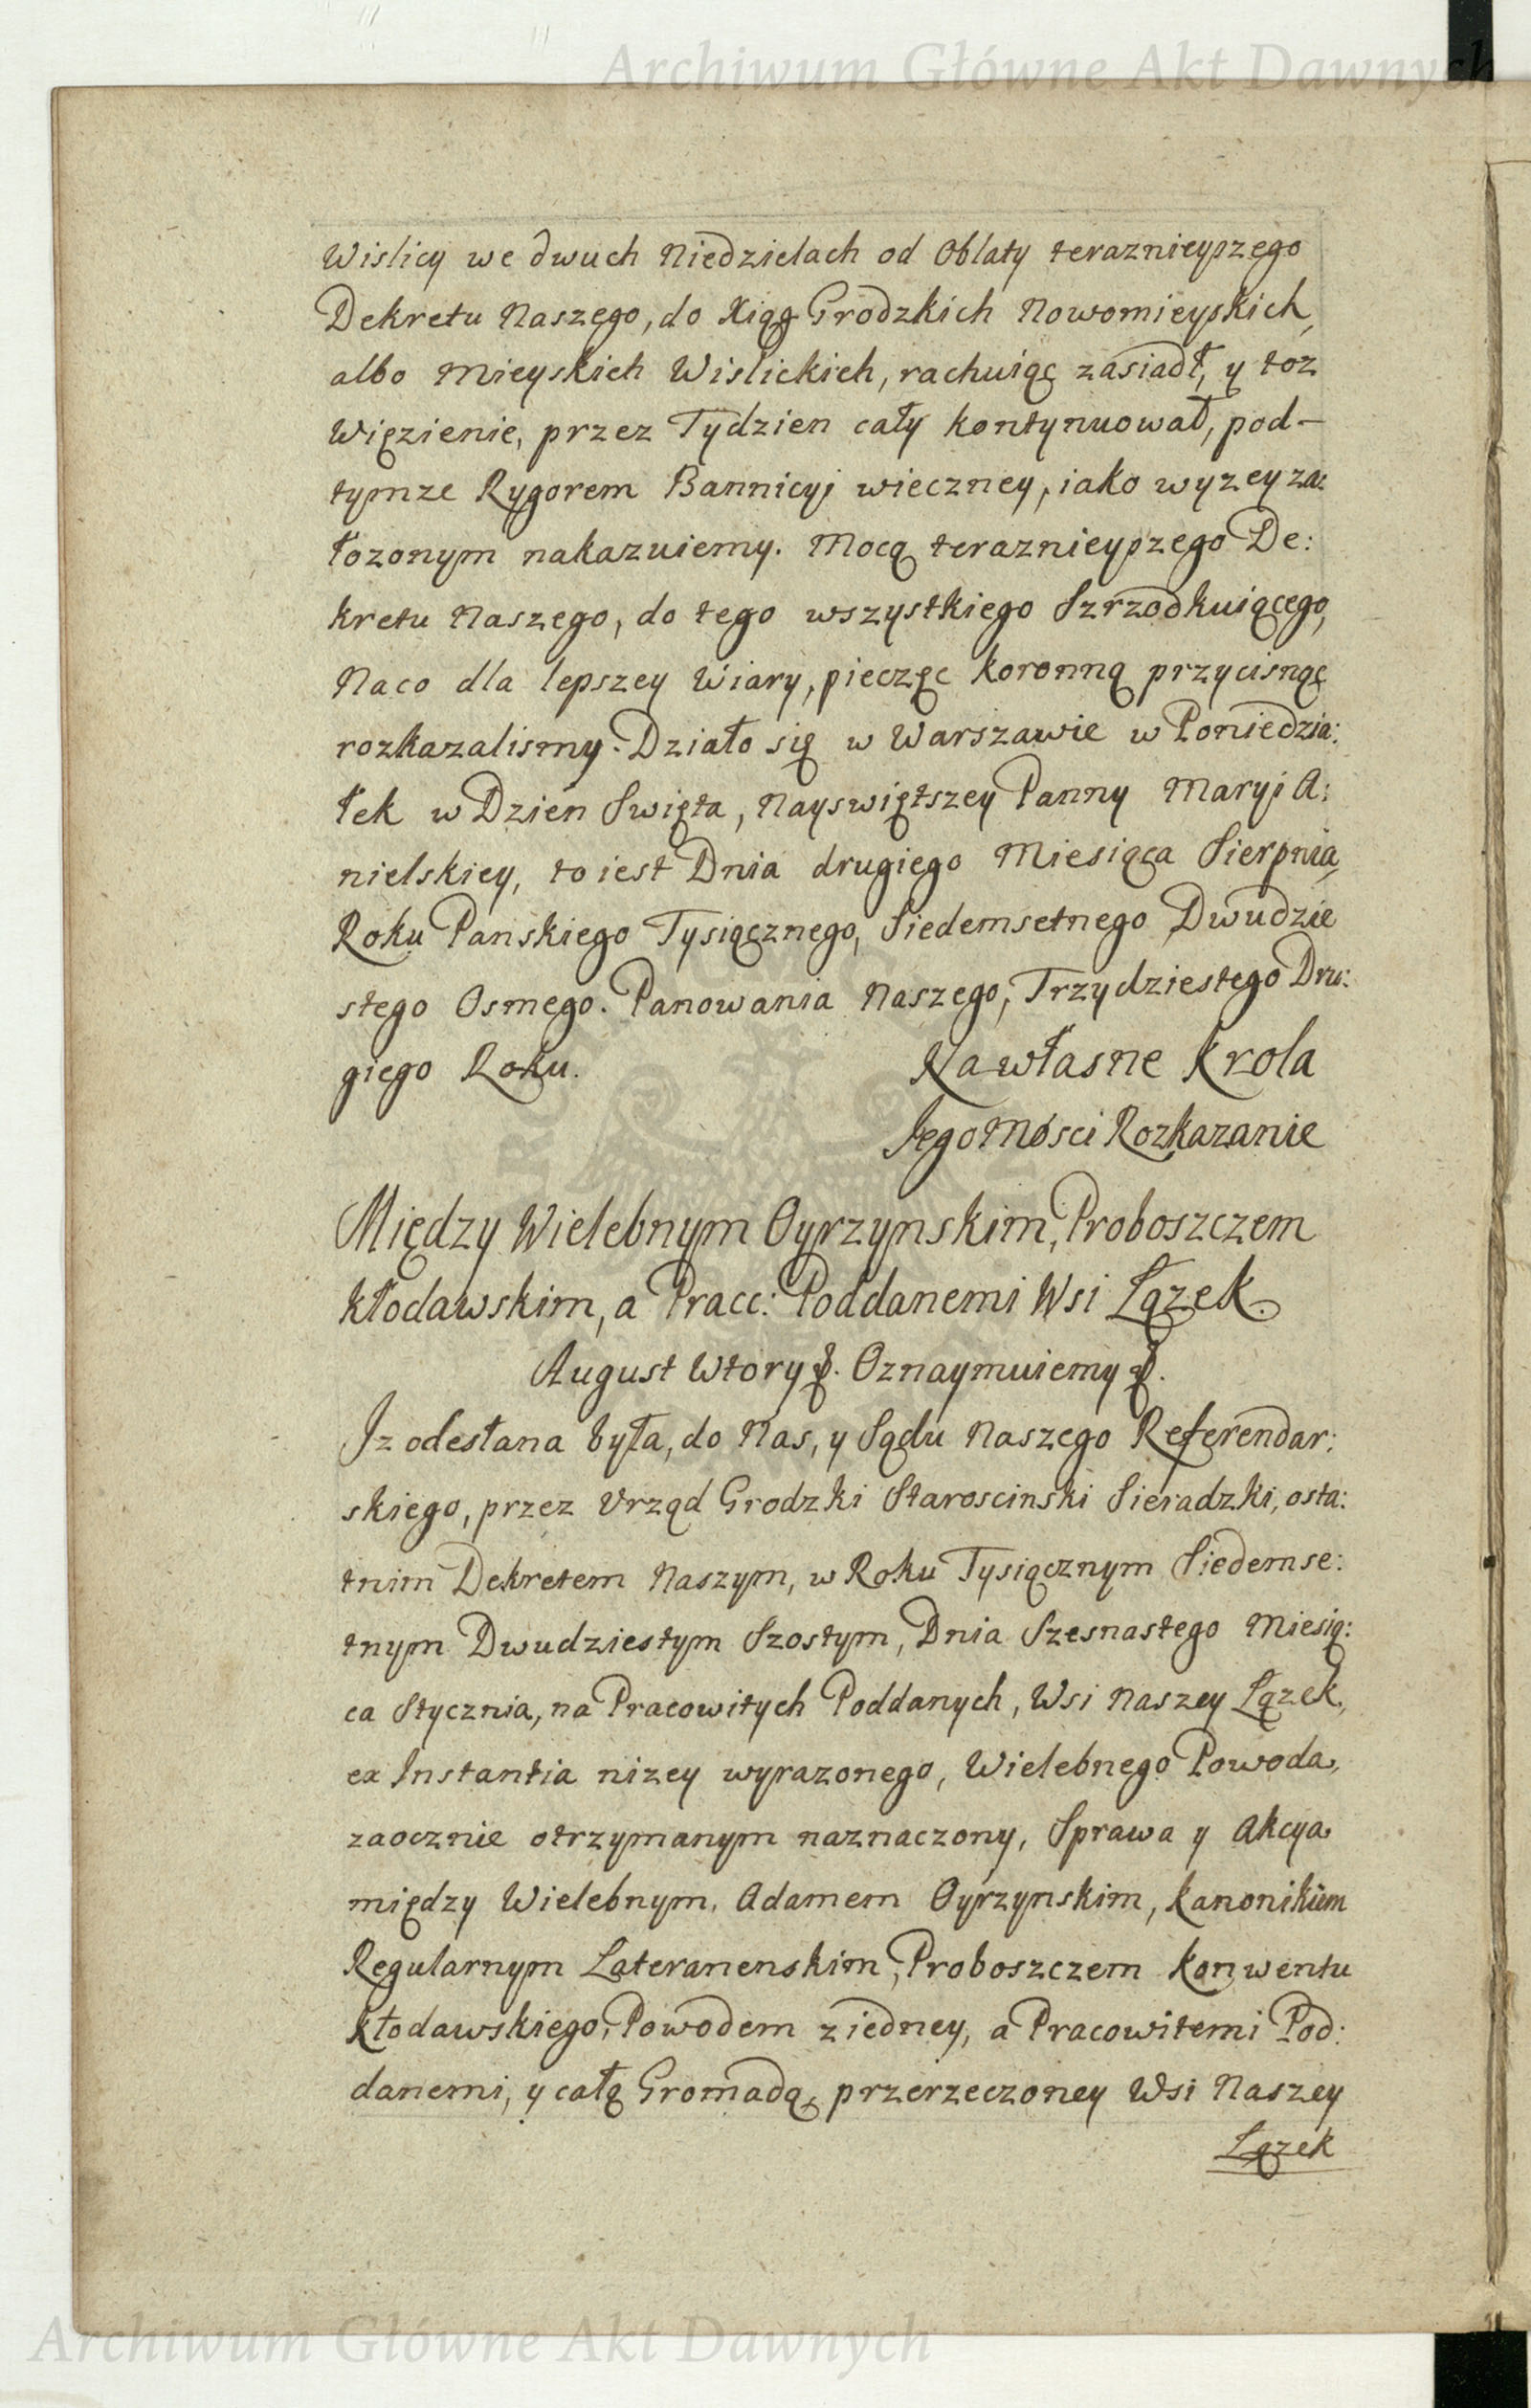 Archiwum Główne Akt Dawnych
Wislicy we dwuch Niedzielach od Oblaty teraznieyszego
Dekretu Naszego, do Xiąg Grodzkich Nowomieyskich,
albo Mieyskich Wislickich, rachuiąc zasiadł, y toz
Więzienie, przez Tydzien cały kontynuował, pod-
tymze Rygorem Bannicyi wieczney, iako wyzey za:
łozonym nakazuiemy. Mocą teraznieyszego De:
kretu Naszego, do tego wszystkiego Szrzodkuiącego,
Naco dla lepszey Wiary, pieczęc koronną przycisnąc
rozkazalismy. Działo się w Warszawie w Poniedzia:
łek w Dzien Swięta, Nayswiętszey Panny Maryi A:
nielskiey, to iest Dnia drugiego Miesiąca Sierpnia,
Roku Panskiego Tysiącznego, Siedemsetnego Dwudzie
stego Osmego. Panowania Naszego, Trzydziestego Dru:
giego Roku.
Na własne Krola
Jego Mósci Rozkazanie
Między Wielebnym Oyrzynskim, Proboszczem
Kłodawskim, a Pracc: Poddanemi Wsi Łązek.
August Wtory &. Oznaymuiemy &.
Iz odesłana była, do Nas, y Sądu Naszego Referendar:
skiego, przez Urząd Grodzki Staroscinski Sieradzki, osta:
tnim Dekretem Naszym, w Roku Tysiącznym Siedemse:
tnym Dwudziestym Szostym, Dnia Szesnastego Miesią:
ca Stycznia, na Pracowitych Poddanych, Wsi Naszey Łązek,
ex Instantia nizey wyrazonego, Wielebnego Powoda,
zaocznie otrzymanym naznaczony, Sprawa y Akcya
między Wielebnym, Adamem Oyrzynskim, Kanonikiem
Regularnym Lateranenskim, Proboszczem Konwentu
Kłodawskiego, Powodem z iedney, a Pracowitemi Pod:
danemi, y całą Gromadą, przerzeczoney Wsi Naszey
Łązek
Archiwum Główne Akt Dawnych